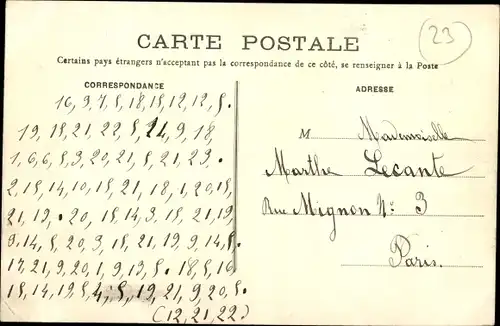 CARTE POSTALE
23
Certains pays étrangers n'acceptant pas la correspondance de ce côté, se renseigner à la Poste
CORRESPONDANCE
16,9,7,5,18,15,12,12,5.
19,15,21,22,5,14,9,18
1,6,6,5,3,20,21,5,21,23.
2,15,14,10,15,21,18,1,20,15,
21,19. 20,15,14,3,15,21,19
9,14,5,20,3,15,21,19,9,14,5,
17,21,9,20,1,9,13,5. 18,5,16
15,14,19,5,4,5,19,21,9,20,5.
(12,21,22)
ADRESSE
M Mademoiselle
Marthe Lecante
Rue Mignon N: 3
Paris.